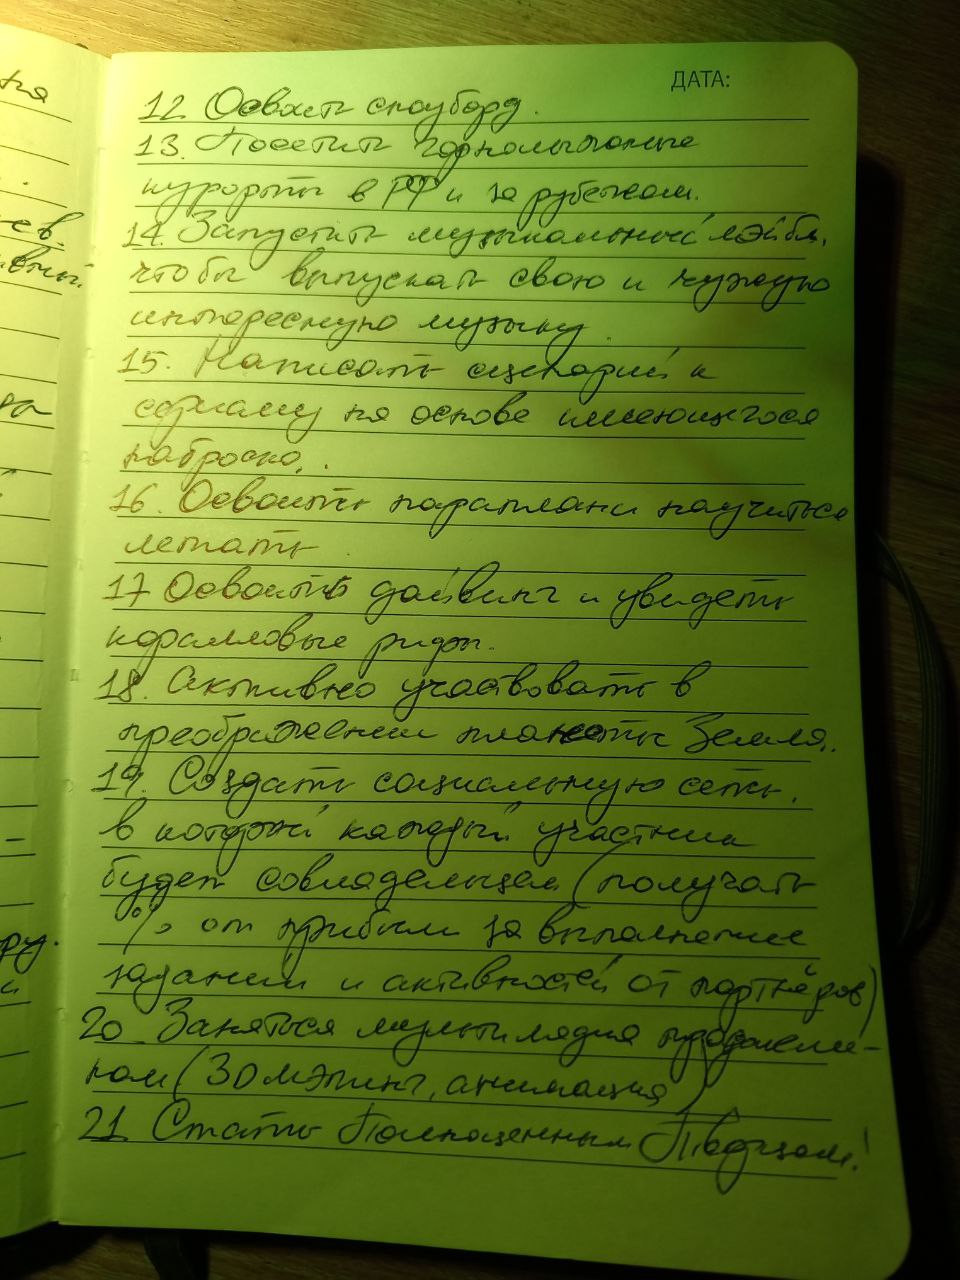 ДАТА:
12. Освоить сноуборд.
13. Посетить горнолыжные
курорты в РФ и за рубежом.
14. Запустить музыкальный лэйбл,
чтобы выпускать свою и чужую
интересную музыку.
15. Написать сценарий к
сериалу на основе имеющегося
наброска.
16. Освоить параплан и научиться
летать.
17 Освоить дайвинг и увидеть
коралловые рифы.
18. Активно участвовать в
преображении планеты Земля.
19. Создать социальную сеть,
в которой каждый участник
будет совладельцем (получать
% от прибыли за выполнение
заданий и активностей от партнёров)
20. Заняться мультимедиа продакше-
ном (3D мэпинг, анимация)
21. Стать Полноценным Творцом!
ев.
ру.